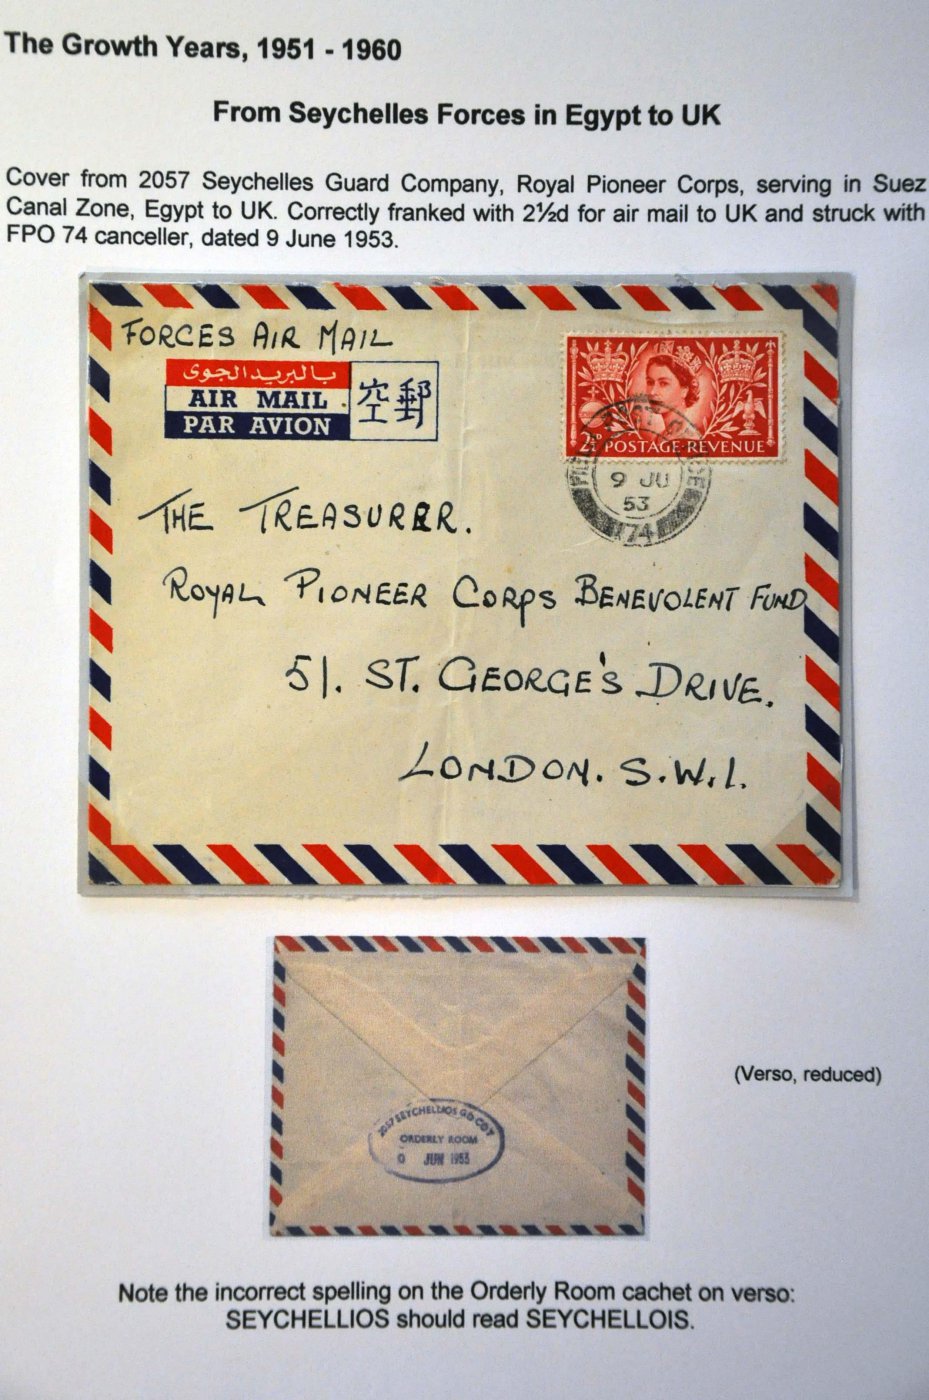 The Growth Years, 1951 - 1960
From Seychelles Forces in Egypt to UK
Cover from 2057 Seychelles Guard Company, Royal Pioneer Corps, serving in Suez
Canal Zone, Egypt to UK. Correctly franked with 2½d for air mail to UK and struck with
FPO 74 canceller, dated 9 June 1953.
FORCES AIR MAIL
بالبريد الجوى
AIR MAIL
PAR AVION
空郵
2½D POSTAGE·REVENUE
FIELD POST OFFICE
9 JU
53
74
THE TREASURER.
ROYAL PIONEER CORPS BENEVOLENT FUND
51. ST. GEORGE'S DRIVE.
LONDON. S.W.1.
2057 SEYCHELLIOS GD COY
ORDERLY ROOM
JUN 1953
(Verso, reduced)
Note the incorrect spelling on the Orderly Room cachet on verso:
SEYCHELLIOS should read SEYCHELLOIS.